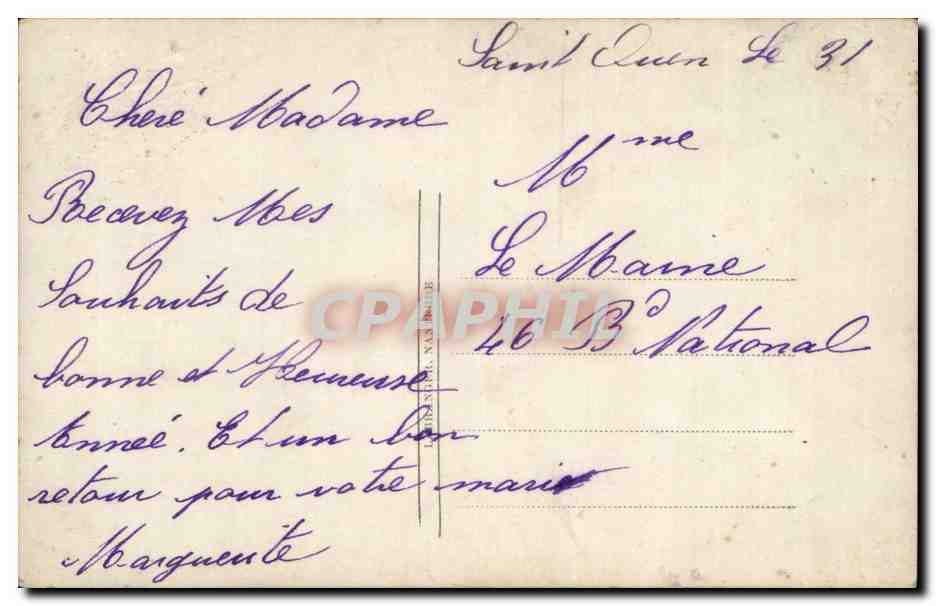 Saint Ouen Le 31
Cheré Madame
Recevez Mes
Souhaits de
bonne et Heureuse
Année. Et un bon
retour pour votre mari
Marguerite
Mme
Le Maine
46 Bd National
CPAPHIL